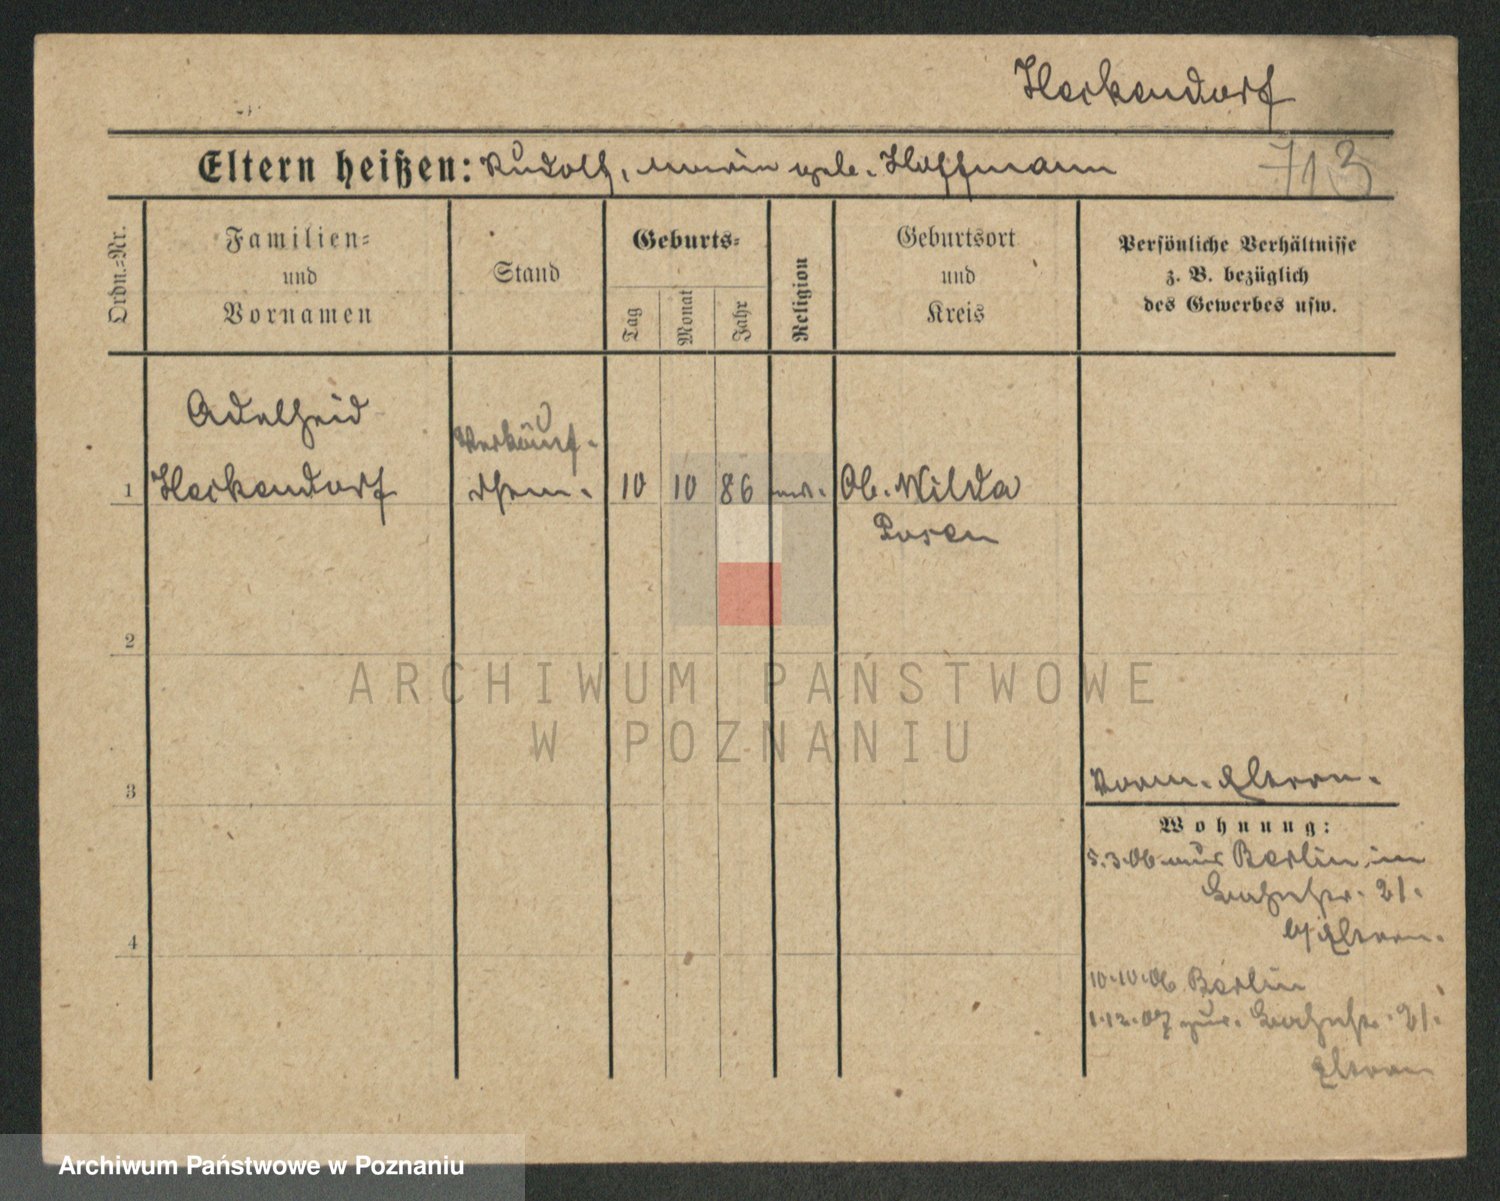 Heckendorf
Eltern heißen: Rudolf, Maria geb. Hoffmann
713
Ordn.-Nr.
Familien-
und
Vornamen
Stand
Geburts-
Tag
Monat
Jahr
Religion
Geburtsort
und
Kreis
Persönliche Verhältnisse
z. B. bezüglich
des Gewerbes usw.
Adelheid
Verkäuf-
1 Heckendorf
10 10 86 Ob. Wilda
Posen
2
ARCHIWUM PAŃSTWOWE
W POZNANIU
3
Eltern.
Wohnung:
5.3.06 aus Berlin in
21.
b/Eltern.
4
10.10.06 Berlin
1.12.07 zur. 21.
Eltern
Archiwum Państwowe w Poznaniu